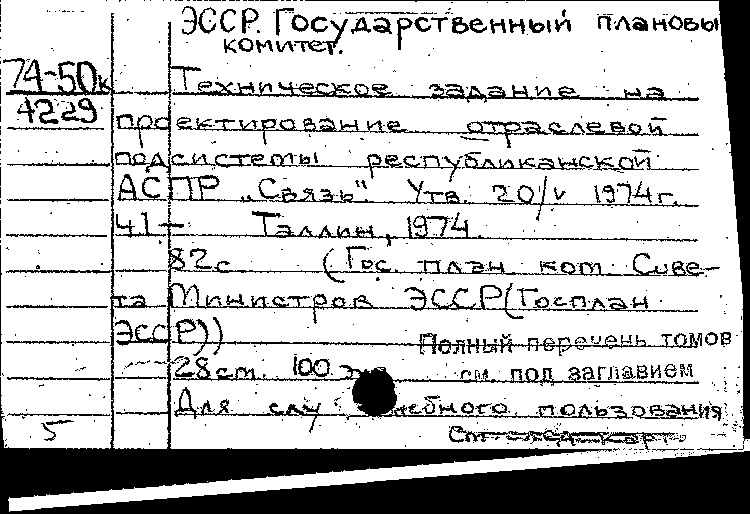 ЭССР. Государственный плановы
комитет.
74-50к
4229
Техническое задание на
проектирование отраслевой
подсистемы республиканской
АСПР „Связь". Утв. 20/V 1974г.
Ч.1- Таллин, 1974.
82с (Гос. план. ком. Сове-
та Министров ЭССР(Госплан
ЭССР))
Полный перечень томов
28см. 100 экз
см. под заглавием
Для служебного пользования
См. след. карт.
5